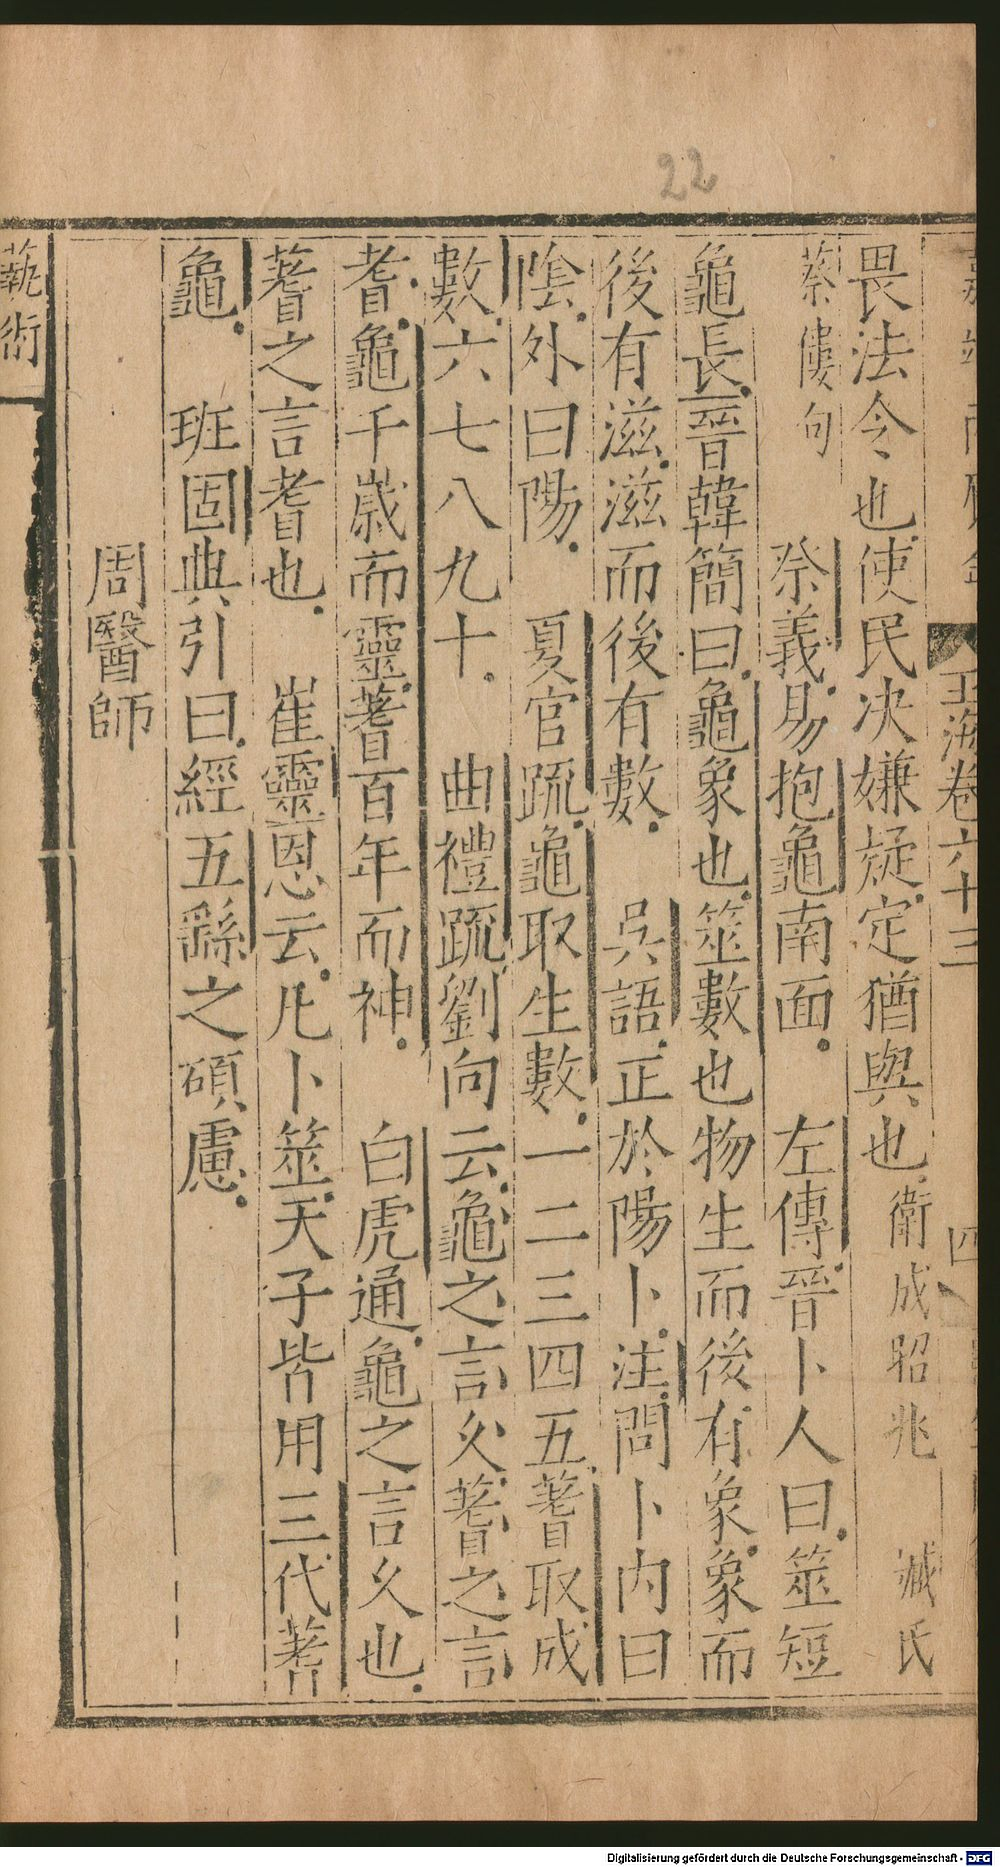 22
玉海卷六十三
四
畏法令也使民决嫌疑定猶與也衛成昭兆 臧氏
蔡僂句 祭義易抱龜南面 左傳晉卜人曰筮短
龜長晉韓簡曰龜象也筮數也物生而後有象象而
後有滋滋而後有數 吳語正於陽卜注問卜内曰
陰外曰陽 夏官疏龜取生數一二三四五蓍取成
數六七八九十 曲禮疏劉向云龜之言久蓍之言
耆龜千歲而靈蓍百年而神 白虎通龜之言久也
蓍之言耆也 崔靈恩云凡卜筮天子皆用三代蓍
龜 班固典引曰經五繇之碩慮
周醫師
藝術
Digitalisierung gefördert durch die Deutsche Forschungsgemeinschaft - DFG